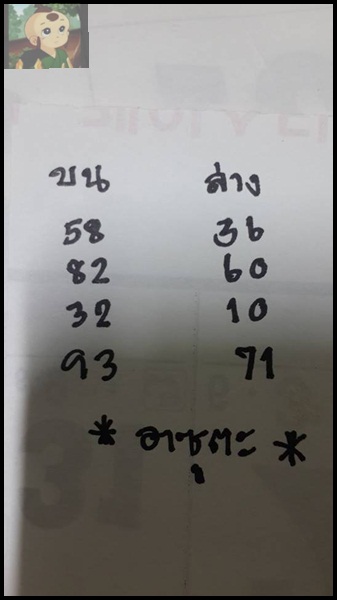 บน ล่าง
58 36
82 60
32 10
93 71
* อาซุตะ *